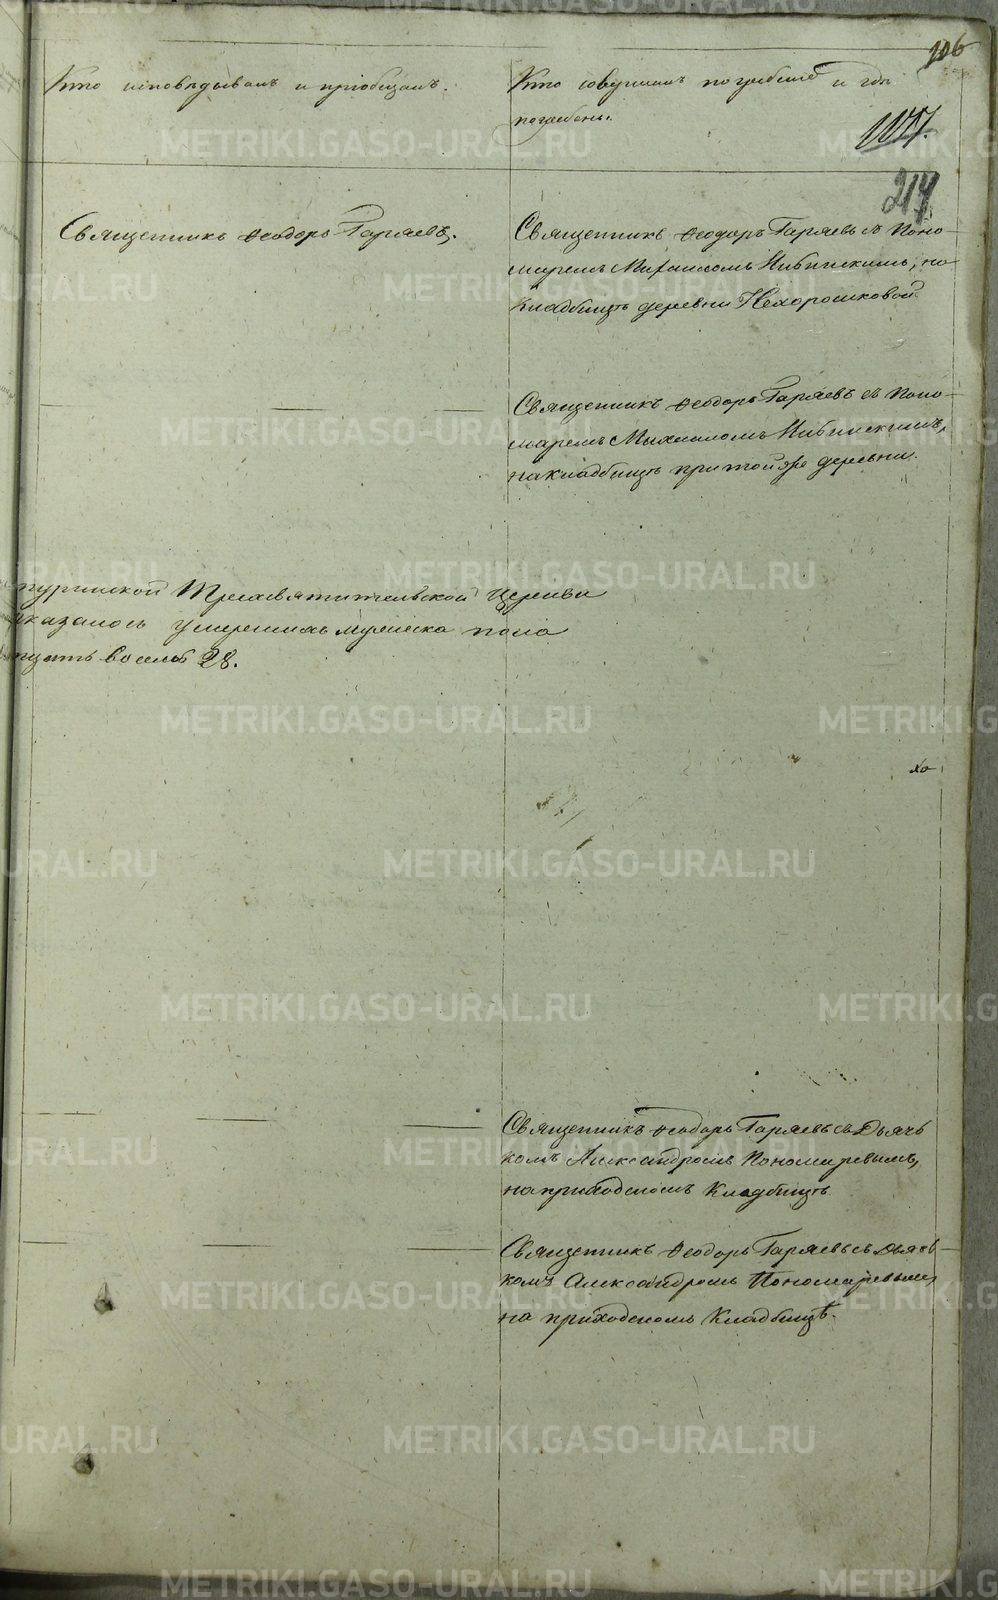 106
Кто исповѣдывалъ и пріобщалъ.
Кто совершалъ погребеніе и гдѣ
погребены.
107.
217
Священникъ Ѳеодоръ Гаряевъ.
Священникъ Ѳеодоръ Гаряевъ съ Поно-
маремъ Михаиломъ, на
кладбищѣ деревни Нехорошковой.
Священникъ Ѳеодоръ Гаряевъ съ Поно-
маремъ Михаиломъ
на кладбищѣ при той же деревни.
Трехсвятительской Церкви
оказалось умершихъ мужеска пола
восемь 28.
Священникъ Ѳеодоръ Гаряевъ съ Дьячь
комъ Александромъ Пономаревымъ,
на приходскомъ Кладбищѣ
Священникъ Ѳеодоръ Гаряевъ съ Дьячь-
комъ Александромъ Пономаревымъ,
на приходскомъ Кладбищѣ.
METRIKI.GASO-URAL.RU